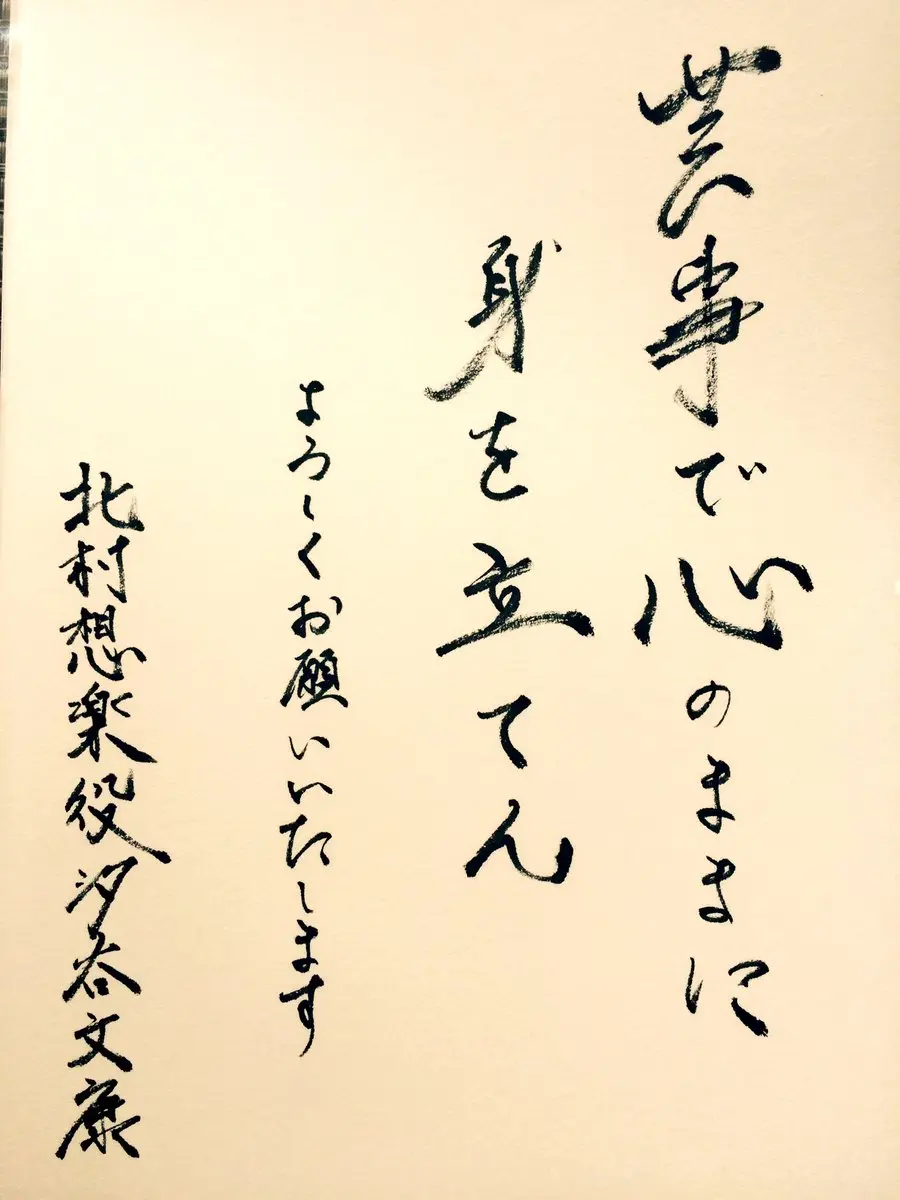 芸事で心のままに
身を立てん
よろしくお願いいたします
北村想楽役汐谷文康